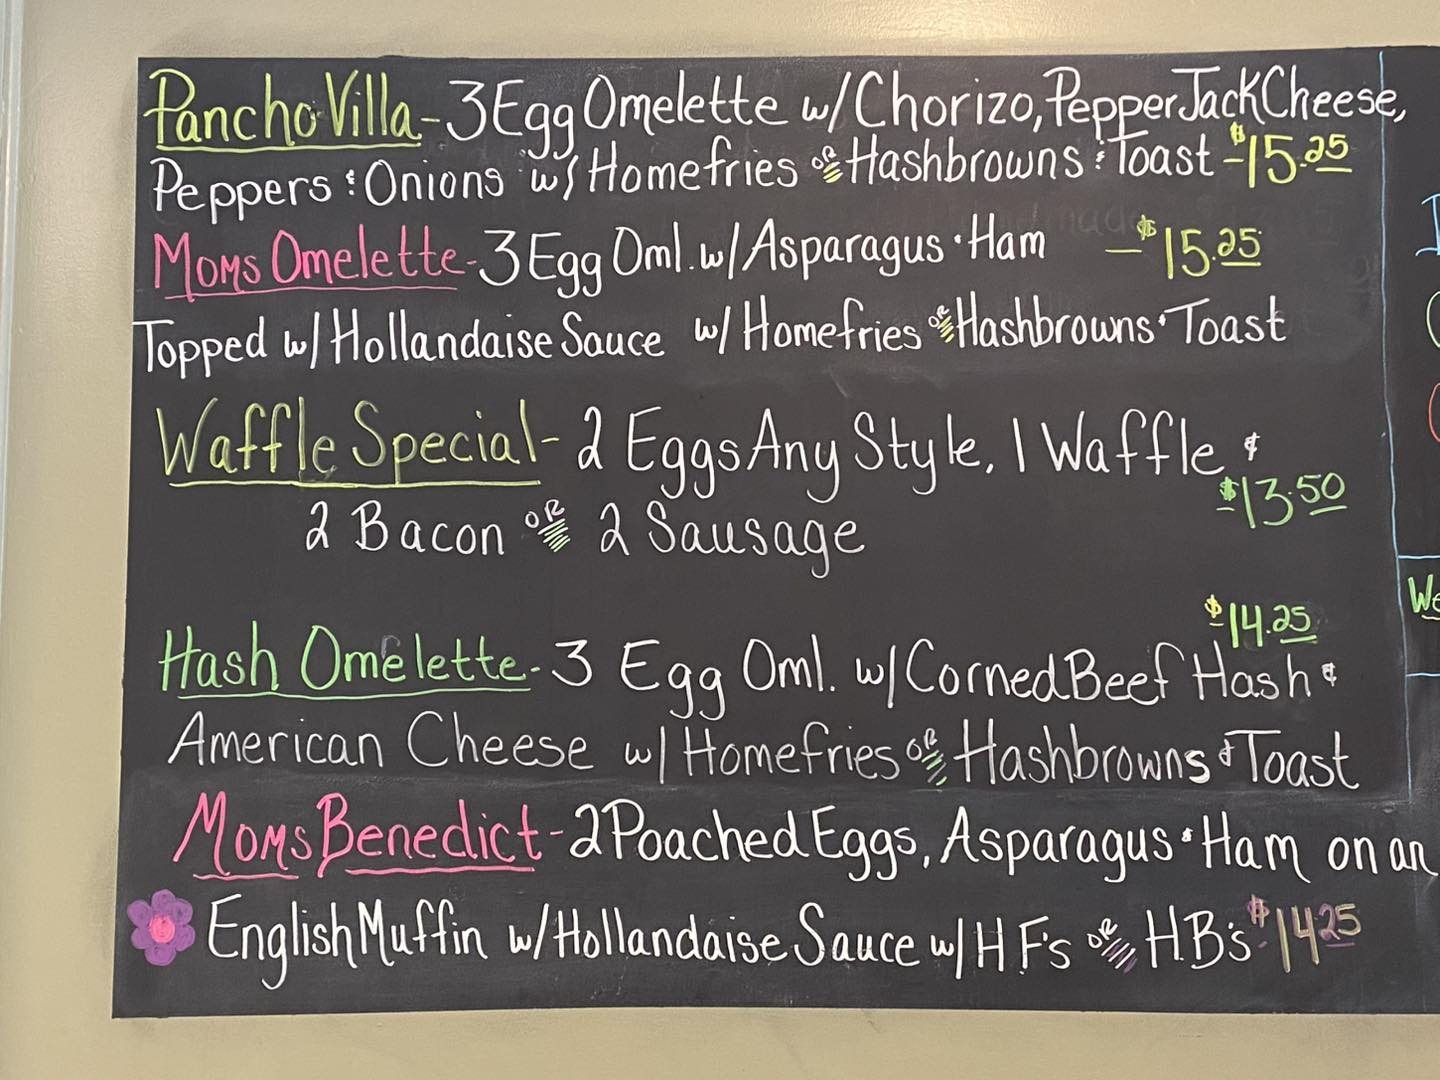 Pancho Villa - 3 Egg Omelette w/ Chorizo, Pepper Jack Cheese,
Peppers & Onions w/ Homefries OR Hashbrowns & Toast - $15.25
Moms Omelette - 3 Egg Oml. w/ Asparagus & Ham - $15.25
Topped w/ Hollandaise Sauce w/ Homefries OR Hashbrowns & Toast
Waffle Special - 2 Eggs Any Style, 1 Waffle &
2 Bacon OR 2 Sausage $13.50
$14.25
Hash Omelette - 3 Egg Oml. w/ Corned Beef Hash &
American Cheese w/ Homefries OR Hashbrowns & Toast
Moms Benedict - 2 Poached Eggs, Asparagus & Ham on an
English Muffin w/ Hollandaise Sauce w/ H.F's OR H.B's $14.25
We